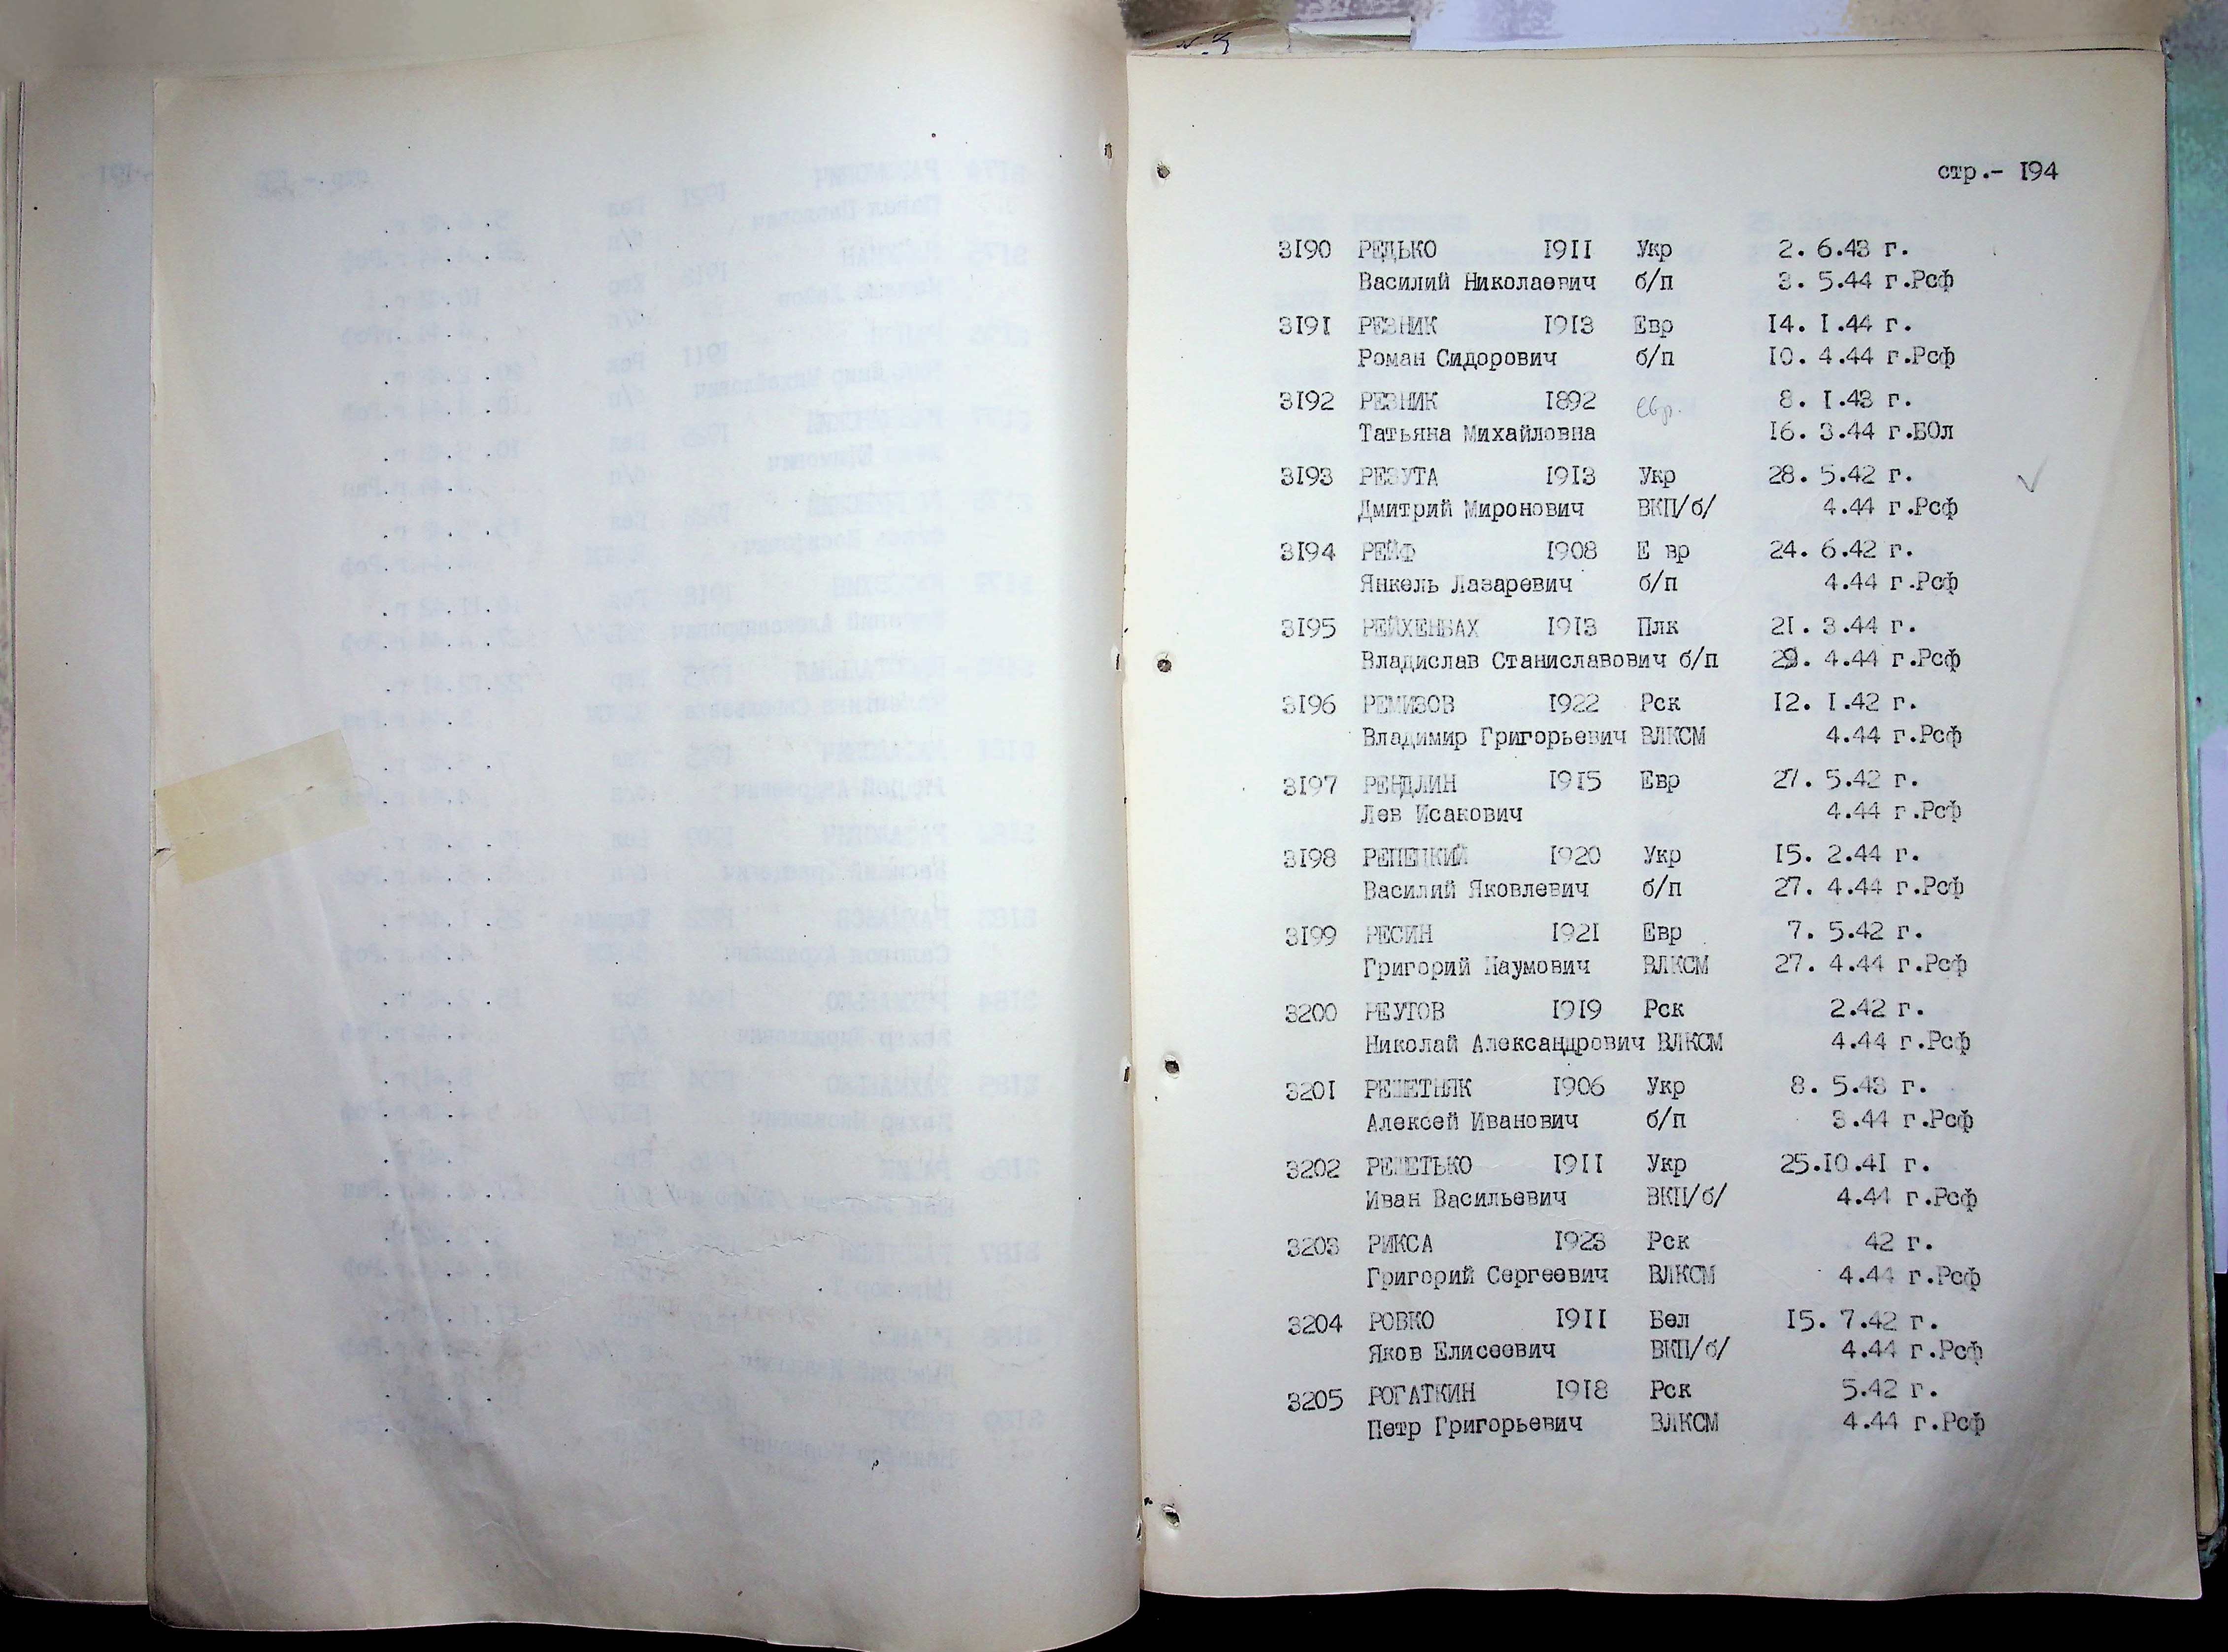 стр.- I94
3I90 РЕДЬКО I9II Укр 2. 6.43 г.
Василий Николаевич б/п 3. 5.44 г.Рсф
3I9I РЕЗНИК I9I3 Евр I4. I.44 г.
Роман Сидорович б/п I0. 4.44 г.Рсф
3I92 РЕЗНИК I892 евр. 8. I.43 г.
Татьяна Михайловна I6. 3.44 г.БОл
3I93 РЕЗУТА I9I3 Укр 28. 5.42 г.
Дмитрий Миронович ВКП/б/ 4.44 г.Рсф
3I94 РЕЙФ I908 Е вр 24. 6.42 г.
Янкель Лазаревич б/п 4.44 г.Рсф
3I95 РЕЙХЕНБАХ I9I3 Плк 2I. 3.44 г.
Владислав Станиславович б/п 29. 4.44 г.Рсф
3I96 РЕМИЗОВ I922 Рск I2. I.42 г.
Владимир Григорьевич ВЛКСМ 4.44 г.Рсф
3I97 РЕНДЛИН I9I5 Евр 27. 5.42 г.
Лев Исакович 4.44 г.Рсф
3I98 РЕПЕЦКИЙ I920 Укр I5. 2.44 г.
Василий Яковлевич б/п 27. 4.44 г.Рсф
3I99 РЕСИН I92I Евр 7. 5.42 г.
Григорий Наумович ВЛКСМ 27. 4.44 г.Рсф
3200 РЕУТОВ I9I9 Рск 2.42 г.
Николай Александрович ВЛКСМ 4.44 г.Рсф
320I РЕШЕТНЯК I906 Укр 8. 5.43 г.
Алексей Иванович б/п 3.44 г.Рсф
3202 РЕШЕТЬКО I9II Укр 25.I0.4I г.
Иван Васильевич ВКП/б/ 4.44 г.Рсф
3203 РИКСА I923 Рск 42 г.
Григорий Сергеевич ВЛКСМ 4.44 г.Рсф
3204 РОВКО I9II Бел I5. 7.42 г.
Яков Елисеевич ВКП/б/ 4.44 г.Рсф
3205 РОГАТКИН I9I8 Рск 5.42 г.
Петр Григорьевич ВЛКСМ 4.44 г.Рсф